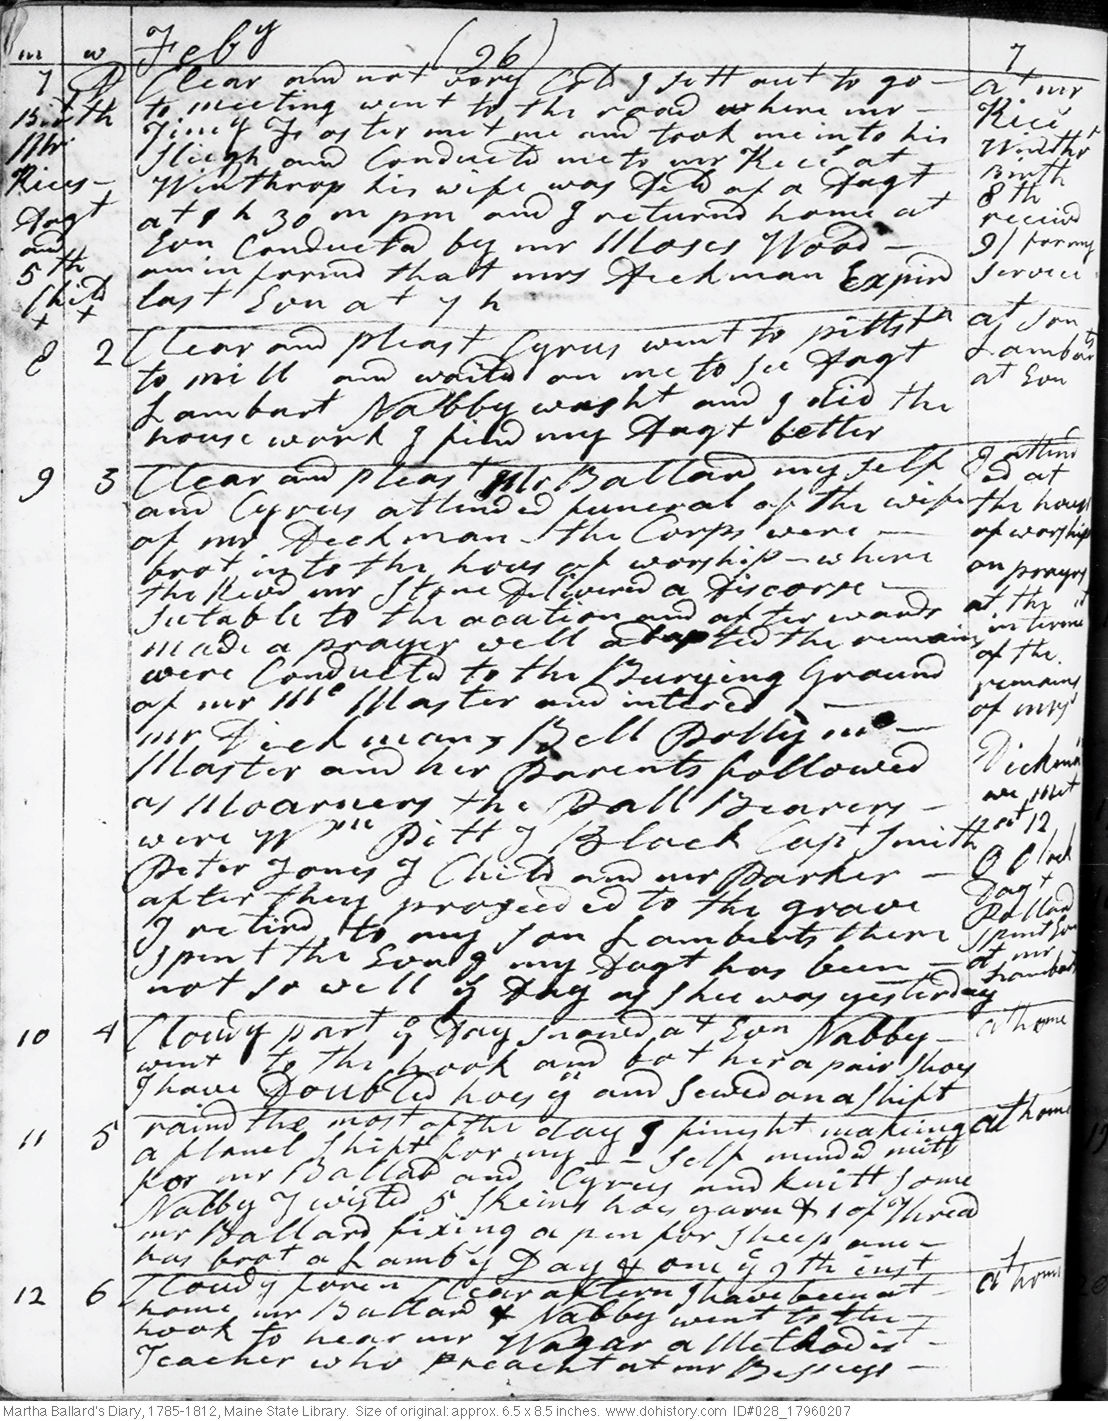 m w Feby (96) 7
7 D Clear and not very Cold I sett out to go - at mr
Birth to meeting went to the road where mr - Rices
Mr Jiney Foster met me and took me into his Winthrt
Rices - Sleigh and Conducted me to mr Rices at Birth
Dagt Winthrop his wife was Delld of a Dagt 8th
and at 1 h 30 m pm and I returnd home at receivd
5th Evn Conducted by mr Moses Wood - 9/ for my
Child am in formd that mrs Dickman Expird service
x x last Evn at 7 h
8 2 Clear and pleast Cyrus went to pittstn at Son
to mill and waited on me to see Dagt Lambards
Lambart Nabby washt and I did the at Evn
house work I find my Dagt better
9 3 Clear and pleast Mr Ballard my self I attend
and Cyrus attinded funeral of the wife ed at
of mr Dickman - the Corps were - the hous
brot in to the hous of worship - where of worship
the Revd mr Stone Delivered a Discorse - on prayrs
sutable to the ocation and after wards at the
made a prayer well adapted the remains interment
were Conducted to the Burying Ground of the
of mr Mc Master and intered - remains
mr Dickman, Bell Polly mc - of mrs
Master and her Parents followed Dickman
as Moarners the Pall Bearers - we met
were Wm Pitt J Black Capt Smith at 12
Peter Jones J Child and mr Parker - O Clock
after they proseeded to the grave Dagt Pollard
I retird to my son Lambarts there spent Evn
spent the Evng my Dagt has been - at mr
not so well ys Day as shee was yesterday Lambards
10 4 Cloudy part ys Day snowd at Evn Nabby - at home
went to the hook and bot her a pair shoes
I have Doubled hoes yn and sewed on a shift
11 5 raind the most of the day I finisht making at home
a flanel shift for my - - self minded mitts
for mr Ballard and Cyrus and knitt some
Nabby Twisted 5 skeins hoes yarn & 1 of Thread
mr Ballard fixing a pen for sheep one -
has brot a Lamb ys Day & one ye 9th inst
12 6 Cloudy foren Clear aftern I have been at - at home
home mr Ballard & Nabby went to the -
hook to hear mr Wagar a Methodist -
Teacher who preacht at mr Bisseys -
Martha Ballard's Diary, 1785-1812, Maine State Library. Size of original: approx. 6.5 x 8.5 inches. www.dohistory.com ID#028_17960207